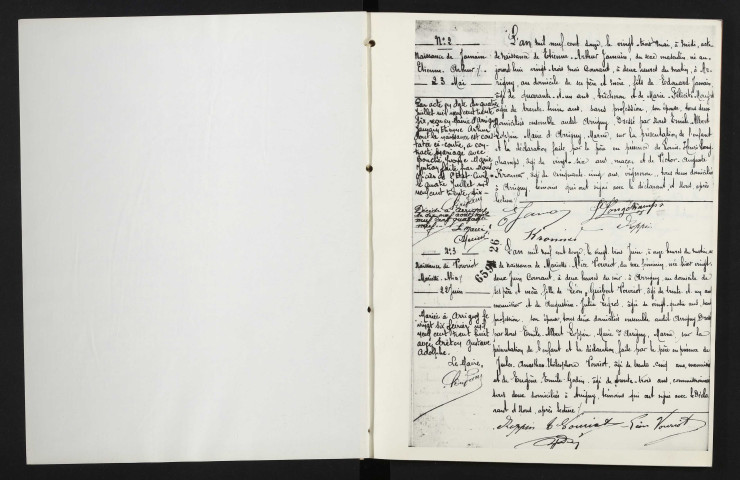 N° 2
Naissance de Jamain
Etienne Arthur
23 Mai
Par acte en date du quatre
Juillet mil neuf cent trente
six, reçu en Mairie d'Arrigny
Jamain Etienne Arthur
dont la naissance est cons-
tatée ci-contre, a con-
tracté mariage avec
Mention faite par Nous
Officier de l'Etat-Civil
le quatre Juillet mil
neuf cent trente-six
Décédé à Arrigny
Le Maire
L'an mil neuf cent douze, le vingt-trois Mai, à midi, acte
de naissance de Etienne-Arthur Jamain, du sexe masculin, né au-
jourd'hui vingt-trois mai courant, à deux heures du matin, à Ar-
rigny au domicile de ses père et mère, fils de Edouard Jamain
âgé de quarante-et-un ans, bûcheron et de Marie
âgée de trente-huit ans, sans profession, son épouse, tous deux
domiciliés ensemble audit Arrigny. Dressé par Nous Emile-Albert
Poppin Maire d'Arrigny, Marne, sur la présentation de l'enfant
et la déclaration faite par le père en présence de Louis Longchamps
âgé de vingt-six ans, et de Victor-Auguste
Kronner, âgé de cinquante-cinq ans, vigneron, tous deux domiciliés
à Arrigny, témoins qui ont signé avec le déclarant et Nous, après
lecture
E Jamain
L Longchamps
Kronner
Poppin
6594 26
N° 3
Naissance de Vouriot
Mariette-Alice
22 Juin
Mariée à Arrigny le
vingt six février mil
neuf cent trente huit
avec Breton Gustave
Adolphe.
Le Maire,
L'an mil neuf cent douze, le vingt-trois Juin, à neuf heures du matin, acte
de naissance de Mariette-Alice Vouriot, du sexe féminin, née hier vingt-
deux Juin courant, à deux heures du soir, à Arrigny au domicile de
ses père et mère, fille de Léon Vouriot, âgé de trente et un ans
manouvrier et de Augustine-Julia, âgée de vingt-quatre ans, sans
profession, son épouse, tous deux domiciliés ensemble audit Arrigny. Dressé
par Nous Emile-Albert Poppin, Maire d'Arrigny, Marne, sur la
présentation de l'enfant et la déclaration faite par le père en présence de
Jules Vouriot, âgé de trente-cinq ans, manouvrier
et de Eugène-Emile Godin, âgé de trente-trois ans, commissionnaire
tous deux domiciliés à Arrigny, témoins qui ont signé avec le Décla-
rant et Nous, après lecture
Poppin Vouriot Léon Vouriot